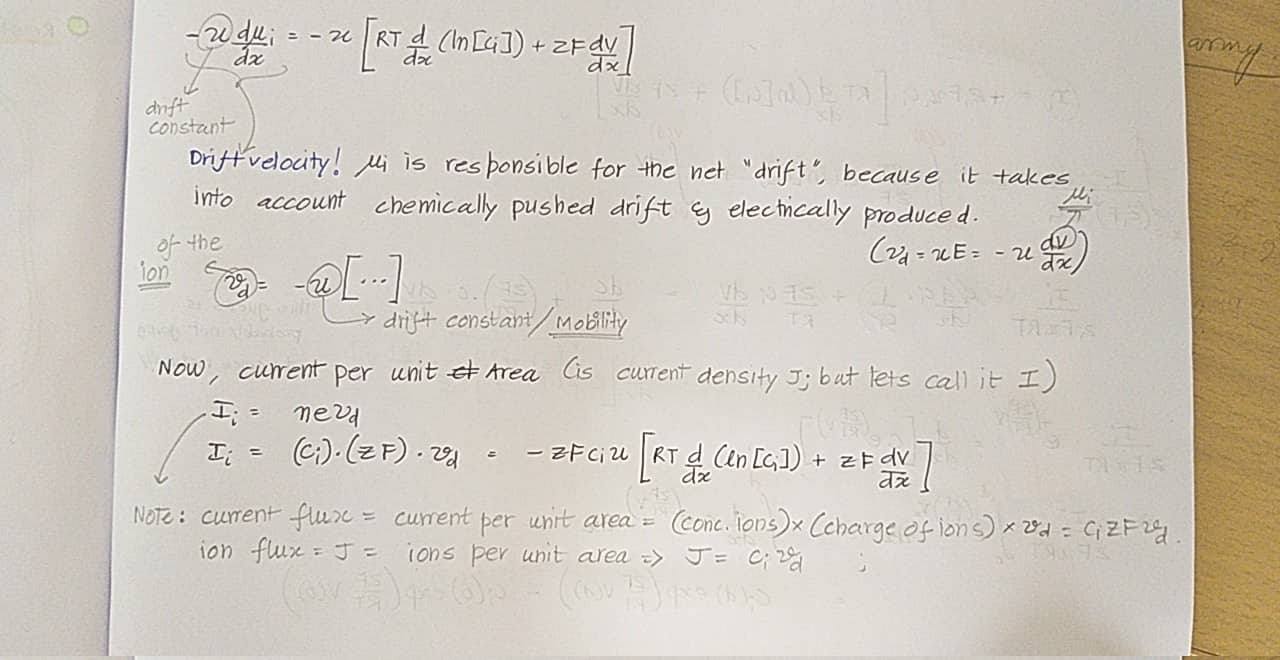 -u dμi/dx = -u [RT d/dx (ln[Ci]) + zF dV/dx]
drift
constant
Drift velocity! μi is responsible for the net "drift", because it takes
into account chemically pushed drift & electrically produced.
μi
(vd = uE = -u dV/dx)
of the
ion
vd = -u [...]
→ drift constant/Mobility
Now, current per unit Area (is current density J; but lets call it I)
Ii = nevd
Ii = (Ci).(zF).vd = -zFCiu [RT d/dx (ln[Ci]) + zF dV/dx]
Note: current flux = current per unit area = (conc. ions)x(charge of ions)x vd = CizFvd.
ion flux = J = ions per unit area => J = Civd ;
army.